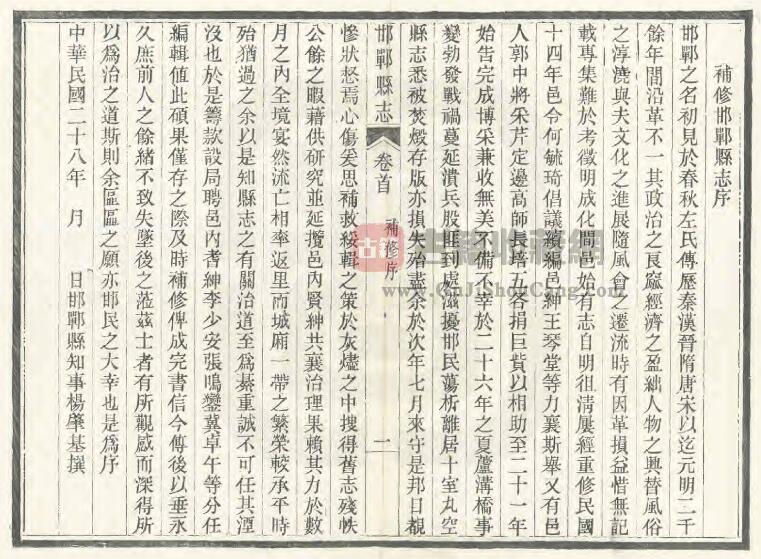 補修邯鄲縣志序
邯鄲之名初見於春秋左氏傳歷秦漢晉隋唐宋以迄元明二千
餘年間沿革不一其政治之良窳經濟之盈絀人物之興替風俗
之淳澆與夫文化之進展隨風會之遷流時有因革損益惜無記
載專集難於考徵明成化間邑始有志自明徂清屢經重修民國
十四年邑令何毓琦倡議續編邑紳王琴堂等力襄斯舉又有邑
人郭中將采芹定邊高師長培五各捐巨貲以相助至二十一年
始告完成博采兼收無美不備不幸於二十六年之夏蘆溝橋事
變勃發戰禍蔓延潰兵股匪到處滋擾邯民蕩析離居十室九空
縣志悉被焚燬存版亦損失殆盡余於次年七月來守是邦目覩
邯鄲縣志
卷首
補修序
二
慘狀愁焉心傷爰思補救綏輯之策於灰燼之中搜得舊志殘帙
公餘之暇藉供研究並延攬邑內賢紳共襄治理果賴其力於數
月之內全境宴然流亡相率返里而城廂一帶之繁榮較承平時
殆猶過之余以是知縣志之有關治道至為綦重誠不可任其湮
沒也於是籌款設局聘邑內耆紳李少安張鳴鑾冀卓午等分任
編輯值此碩果僅存之際及時補修俾成完書信今傳後以垂永
久庶前人之餘緒不致失墜後之蒞茲土者有所觀感而深得所
以為治之道斯則余區區之願亦邯民之大幸也是為序
中華民國二十八年　月　日邯鄲縣知事楊肇基撰
古籍
古籍收藏網
www.GuJiShouCang.com